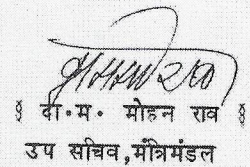 § दा.म. मोहन राव §
उप सचिव,मंत्रिमंडल